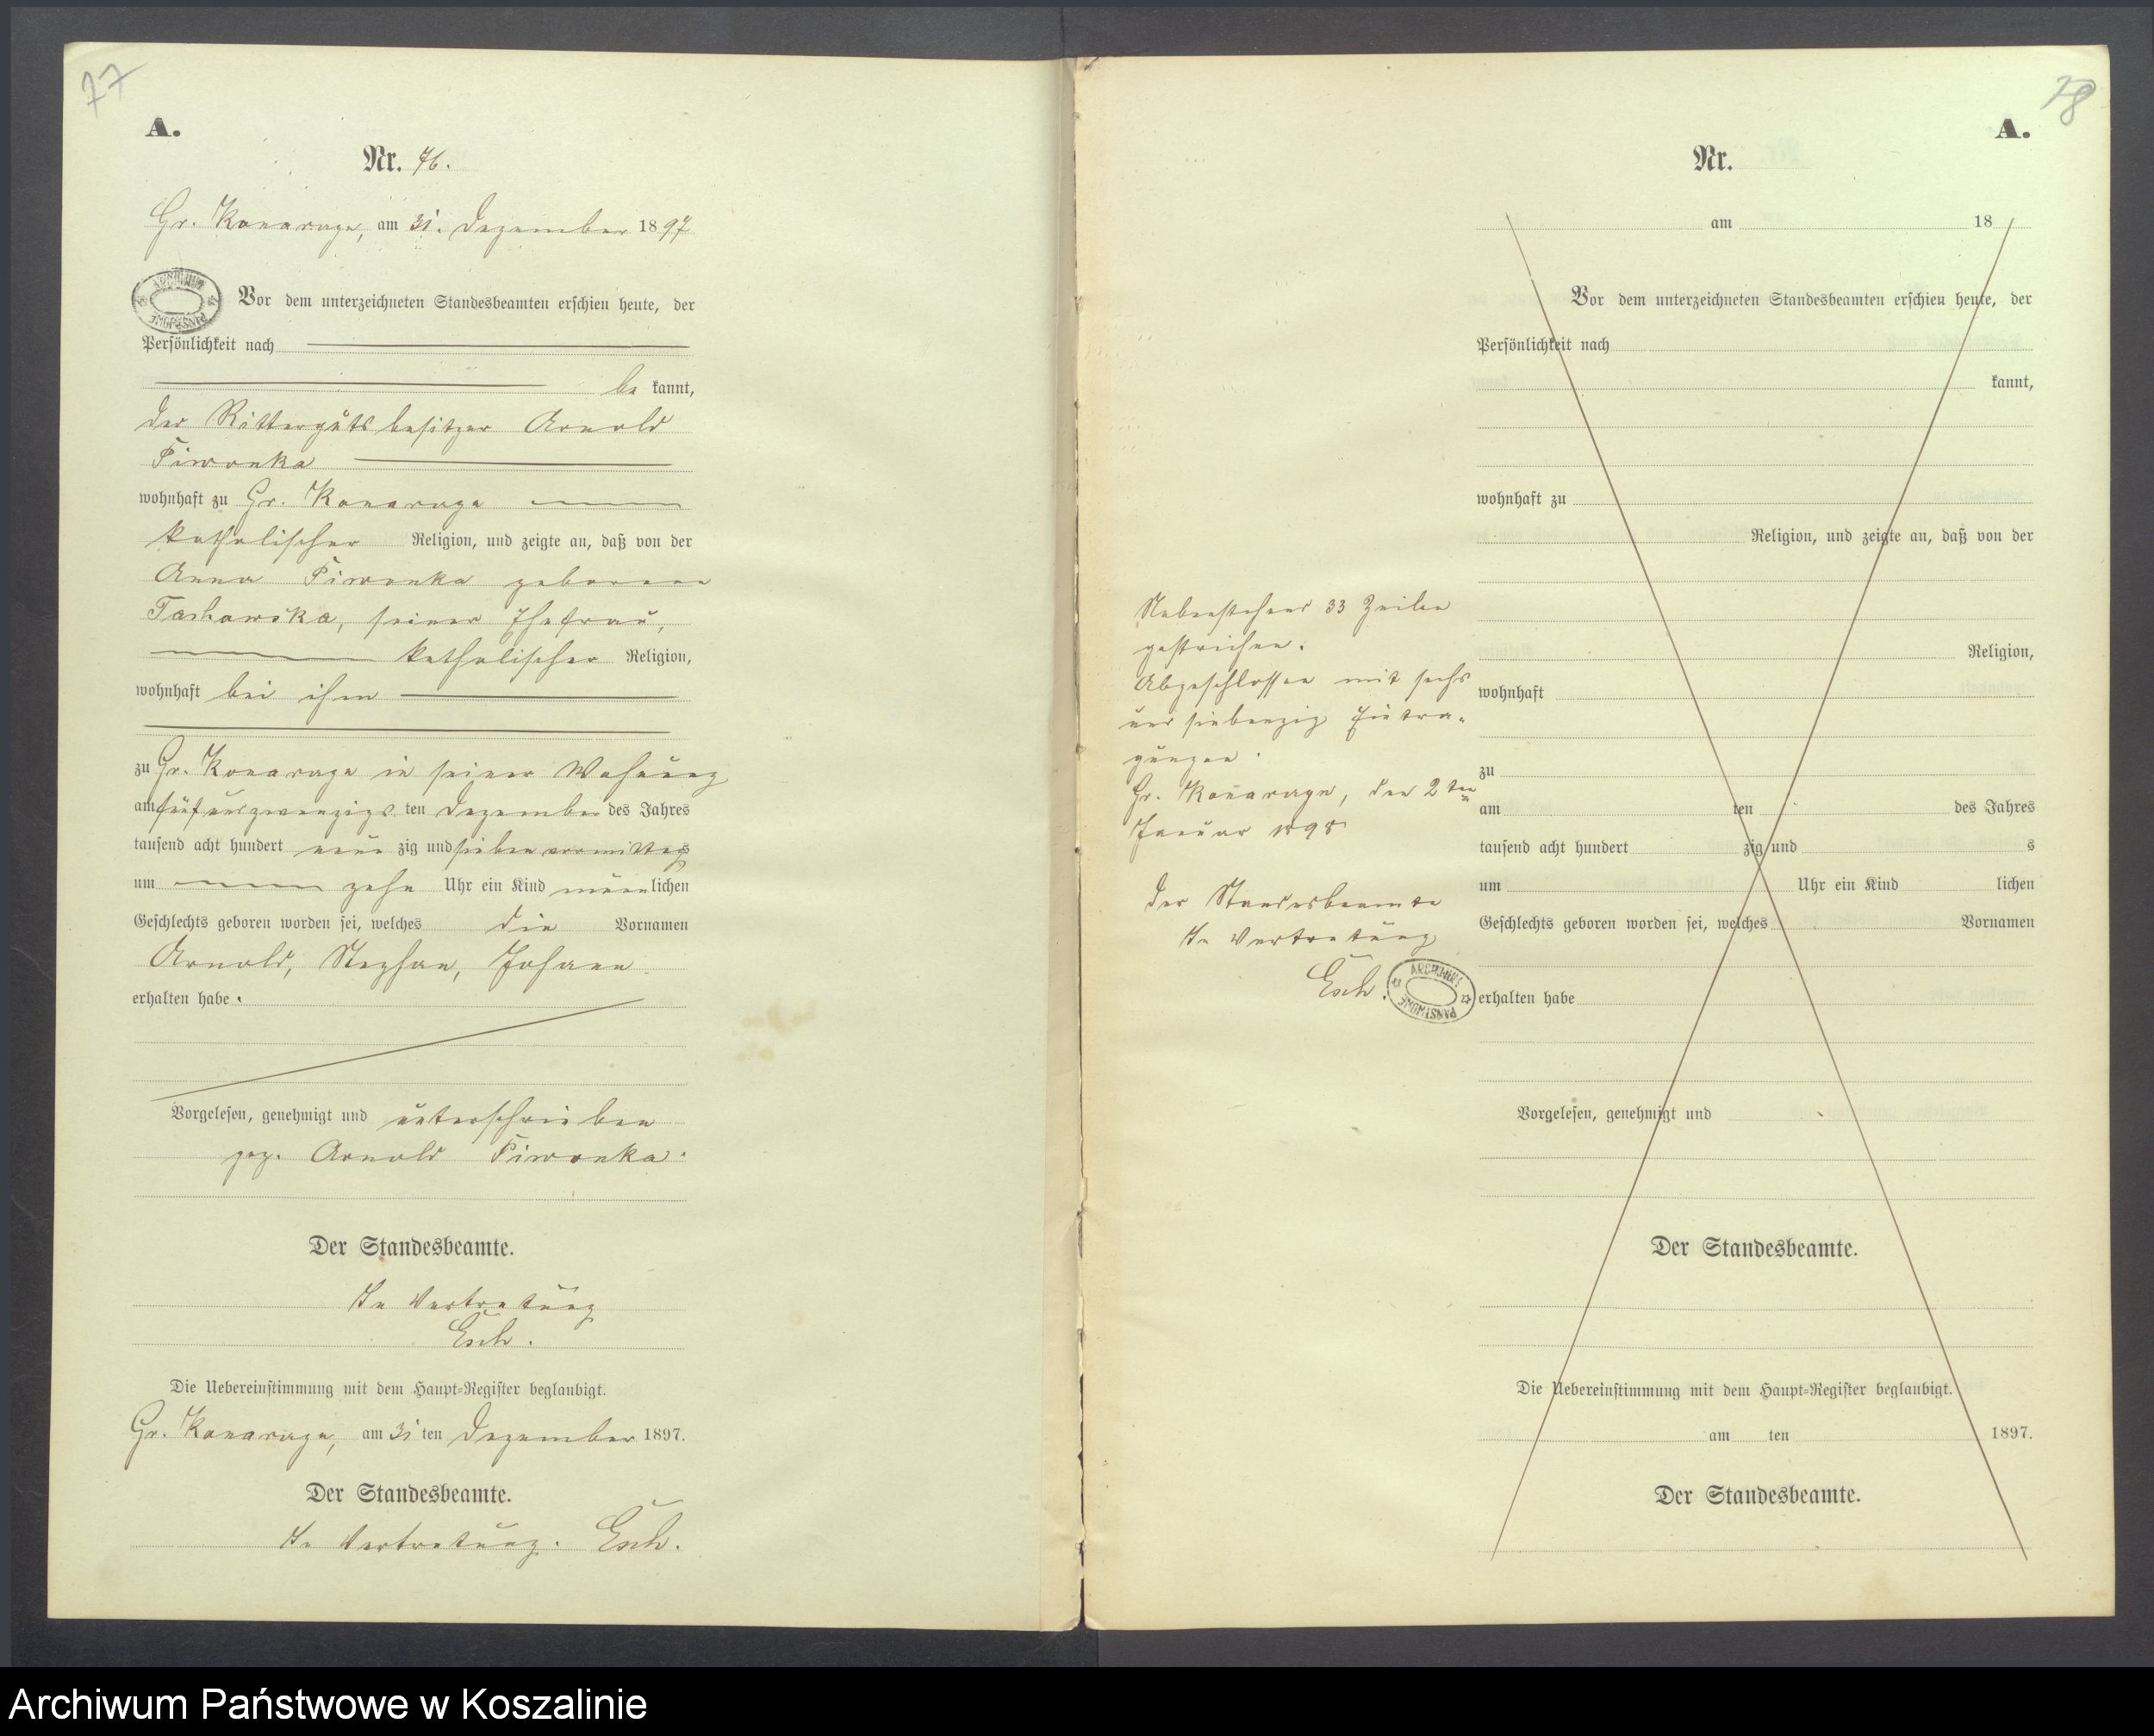 77
A.
Nr. 76.
Gr. Konarzyn, am 31. Dezember 1897
Vor dem unterzeichneten Standesbeamten erschien heute, der
Persönlichkeit nach
be kannt,
der Rittergutsbesitzer Arnold
Piwonka
wohnhaft zu Gr. Konarzyn
katholischer Religion, und zeigte an, daß von der
Anna Piwonka geborene
seiner Ehefrau,
katholischer Religion,
wohnhaft bei ihm
zu Gr. Konarzyn in seiner Wohnung
am fünfundzwanzigsten Dezember des Jahres
tausend acht hundert neun zig und sieben vormittags
um zehn Uhr ein Kind männlichen
Geschlechts geboren worden sei, welches die Vornamen
Arnold, Stephan, Johann
erhalten habe.
Vorgelesen, genehmigt und unterschrieben
gez. Arnold Piwonka.
Der Standesbeamte.
In Vertretung
Esch.
Die Uebereinstimmung mit dem Haupt-Register beglaubigt.
Gr. Konarzyn, am 31 ten Dezember 1897.
Der Standesbeamte.
In Vertretung. Esch.
78
A.
Nr.
am 18
Vor dem unterzeichneten Standesbeamten erschien heute, der
Persönlichkeit nach
kannt,
wohnhaft zu
Religion, und zeigte an, daß von der
Religion,
wohnhaft
zu
am ten des Jahres
tausend acht hundert zig und s
um Uhr ein Kind lichen
Geschlechts geboren worden sei, welches Vornamen
erhalten habe
Vorgelesen, genehmigt und
Der Standesbeamte.
Die Uebereinstimmung mit dem Haupt-Register beglaubigt.
am ten 1897.
Der Standesbeamte.
Nebenstehend 33 Zeilen
gestrichen.
Abgeschlossen mit sechs
und siebenzig Eintra-
gungen.
Gr. Konarzyn, den 2ten
Januar 1898
Der Standesbeamte
In Vertretung
Esch.
ARCHIWUM PAŃSTWOWE
Archiwum Państwowe w Koszalinie